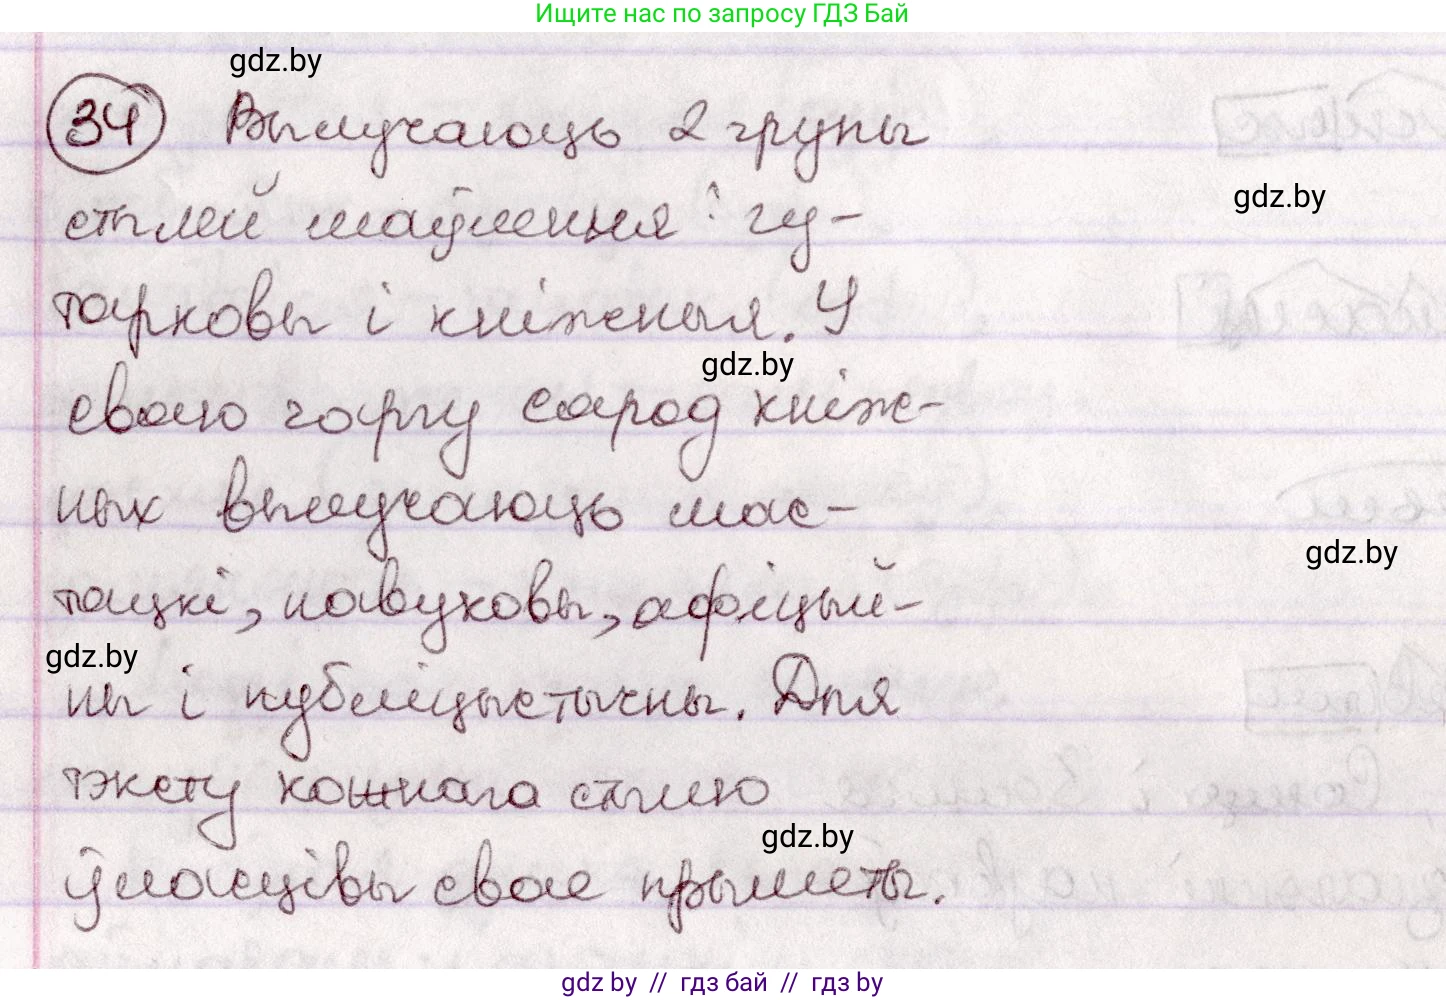 Ищите нас по запросу ГДЗ Бай
gdz.by
34 Вылучаюць 2 групы
gdz.by
стылей маўлення: гу-
тарковы і кніжныя. У
gdz.by
сваю чаргу сарод кніж-
ных вылучаюць мас-
gdz.by
тацкі, навуковы, афіцый-
gdz.by
ны і публіцыстычны. Для
тэксту кожнага стылю
gdz.by
ўласцівы свае прыметы.
gdz.by // гдз бай // гдз by